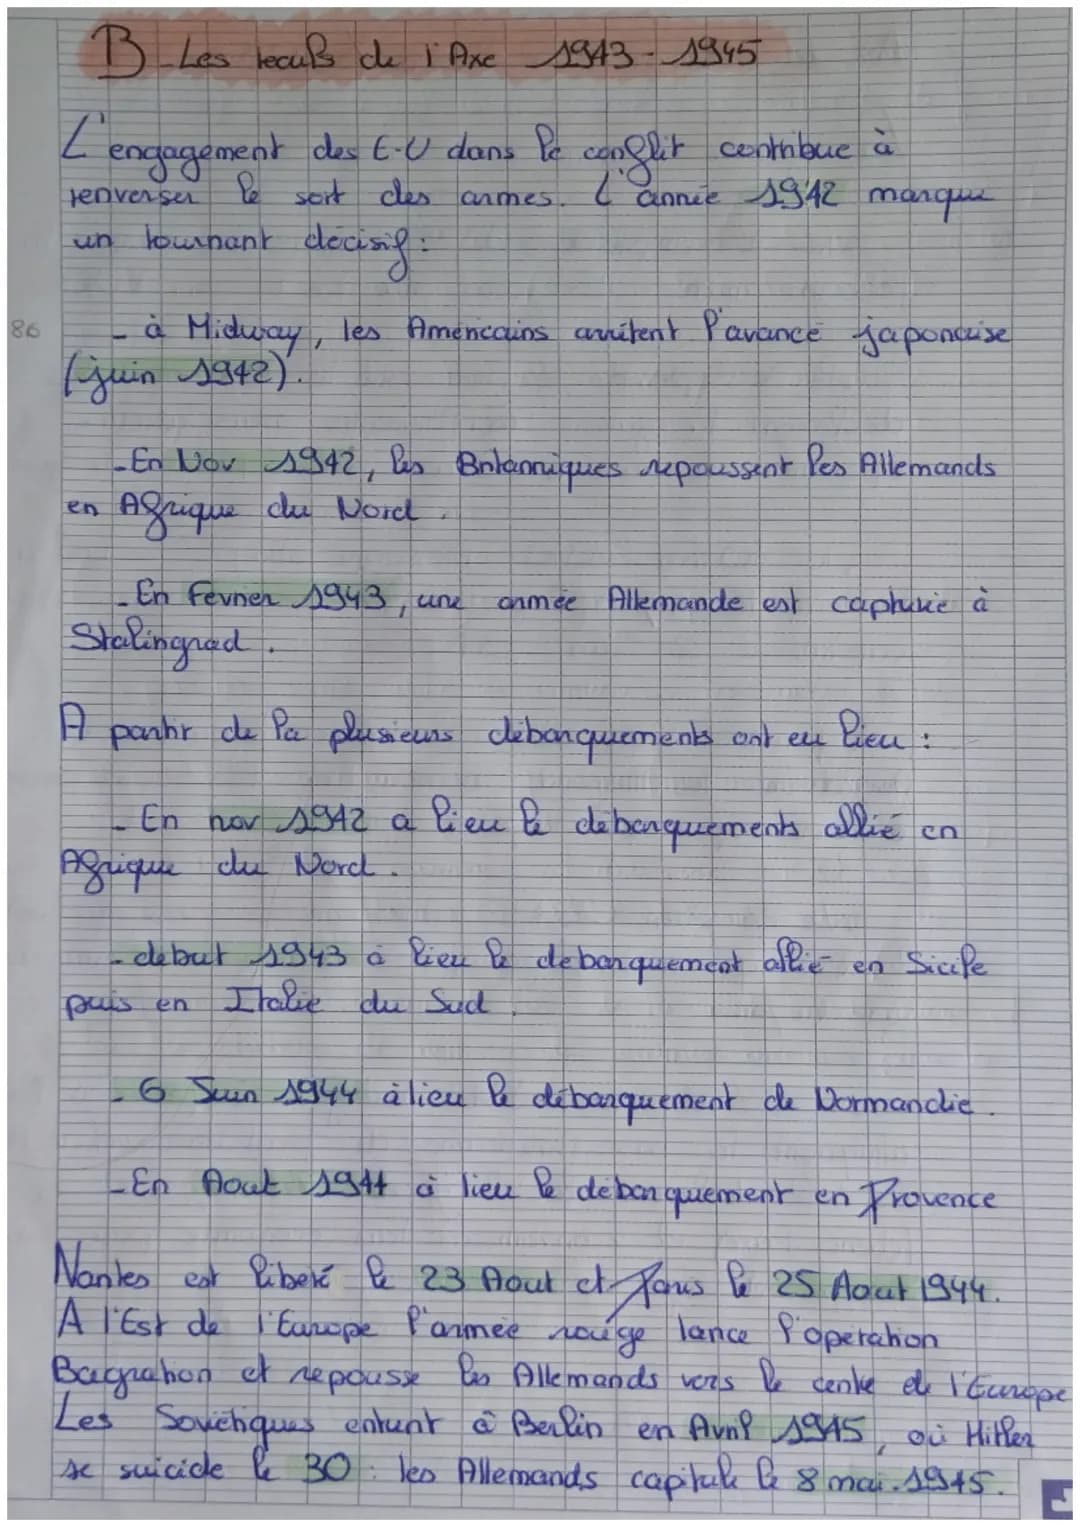 B - Les reculs de l'Axe 1943 - 1945
L'engagement des E-U dans le conflit contribue à
renverser le sort des armes. L'année 1942 marque
un tournant décisif :
86
- à Midway, les Américains arrêtent l'avancé japonaise
(juin 1942).
- En Nov 1942, les Britanniques repoussent les Allemands
en Afrique du Nord.
- En Février 1943, une armée Allemande est capturée à
Stalingrad.
A partir de la plusieurs débarquements ont eu lieu :
- En nov 1942 a lieu le débarquements allié en
Afrique du Nord.
- debut 1943 à lieu le debarquement allié en Sicile
puis en Italie du Sud.
- 6 Juin 1944 à lieu le débarquement de Normandie.
- En Aout 1944 à lieu le débarquement en Provence
Nantes est libéré le 23 Aout et Paris le 25 Aout 1944.
A l'Est de l'Europe l'armée rouge lance l'opération
Bagration et repousse les Allemands vers le centre de l'Europe
Les Soviétiques entrent à Berlin en Avril 1945, où Hitler
se suicide le 30 : les Allemands capitule le 8 mai. 1945.